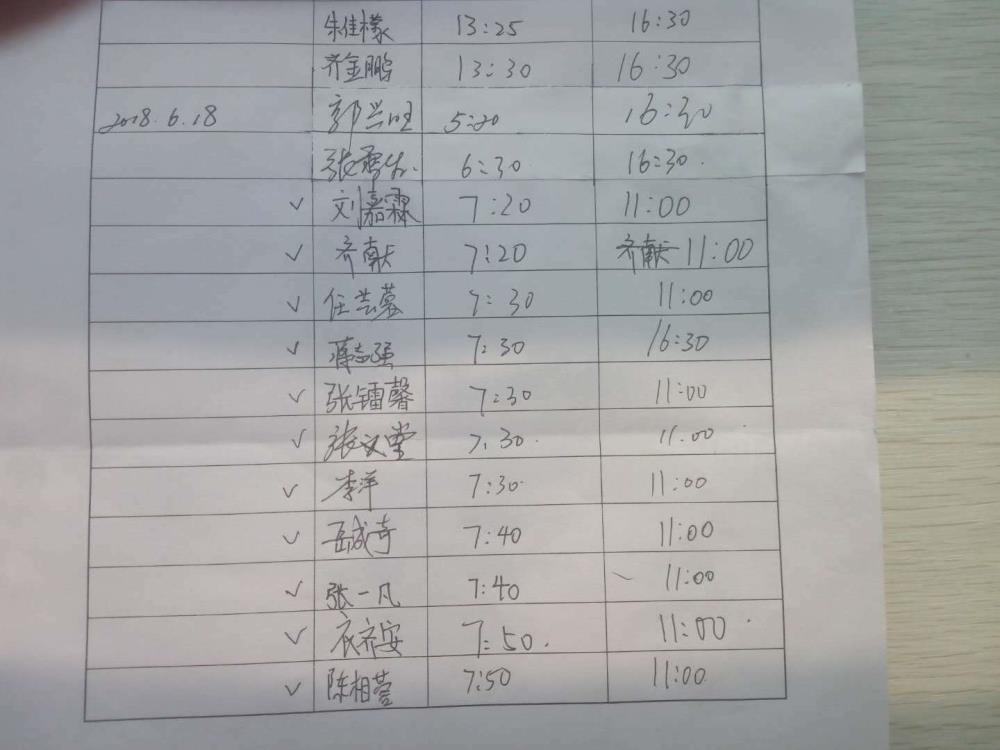 朱佳檬 13:25 16:30
齐金鹏 13:30 16:30
2018.6.18 郭兴旺 5:20 16:30
张 6:30 16:30.
✓ 刘嘉霖 7:20 11:00
✓ 齐献 7:20 齐献 11:00
✓ 任芸慕 7:30 11:00
✓ 蒋志强 7:30 16:30
✓ 张镭馨 7:30 11:00
✓ 张文堂 7.30. 11.00
✓ 李洋 7:30 11:00
✓ 岳成奇 7:40 11:00
✓ 张一凡 7:40 11:00
✓ 衣齐安 7:50. 11:00
✓ 陈相萱 7:50 11:00